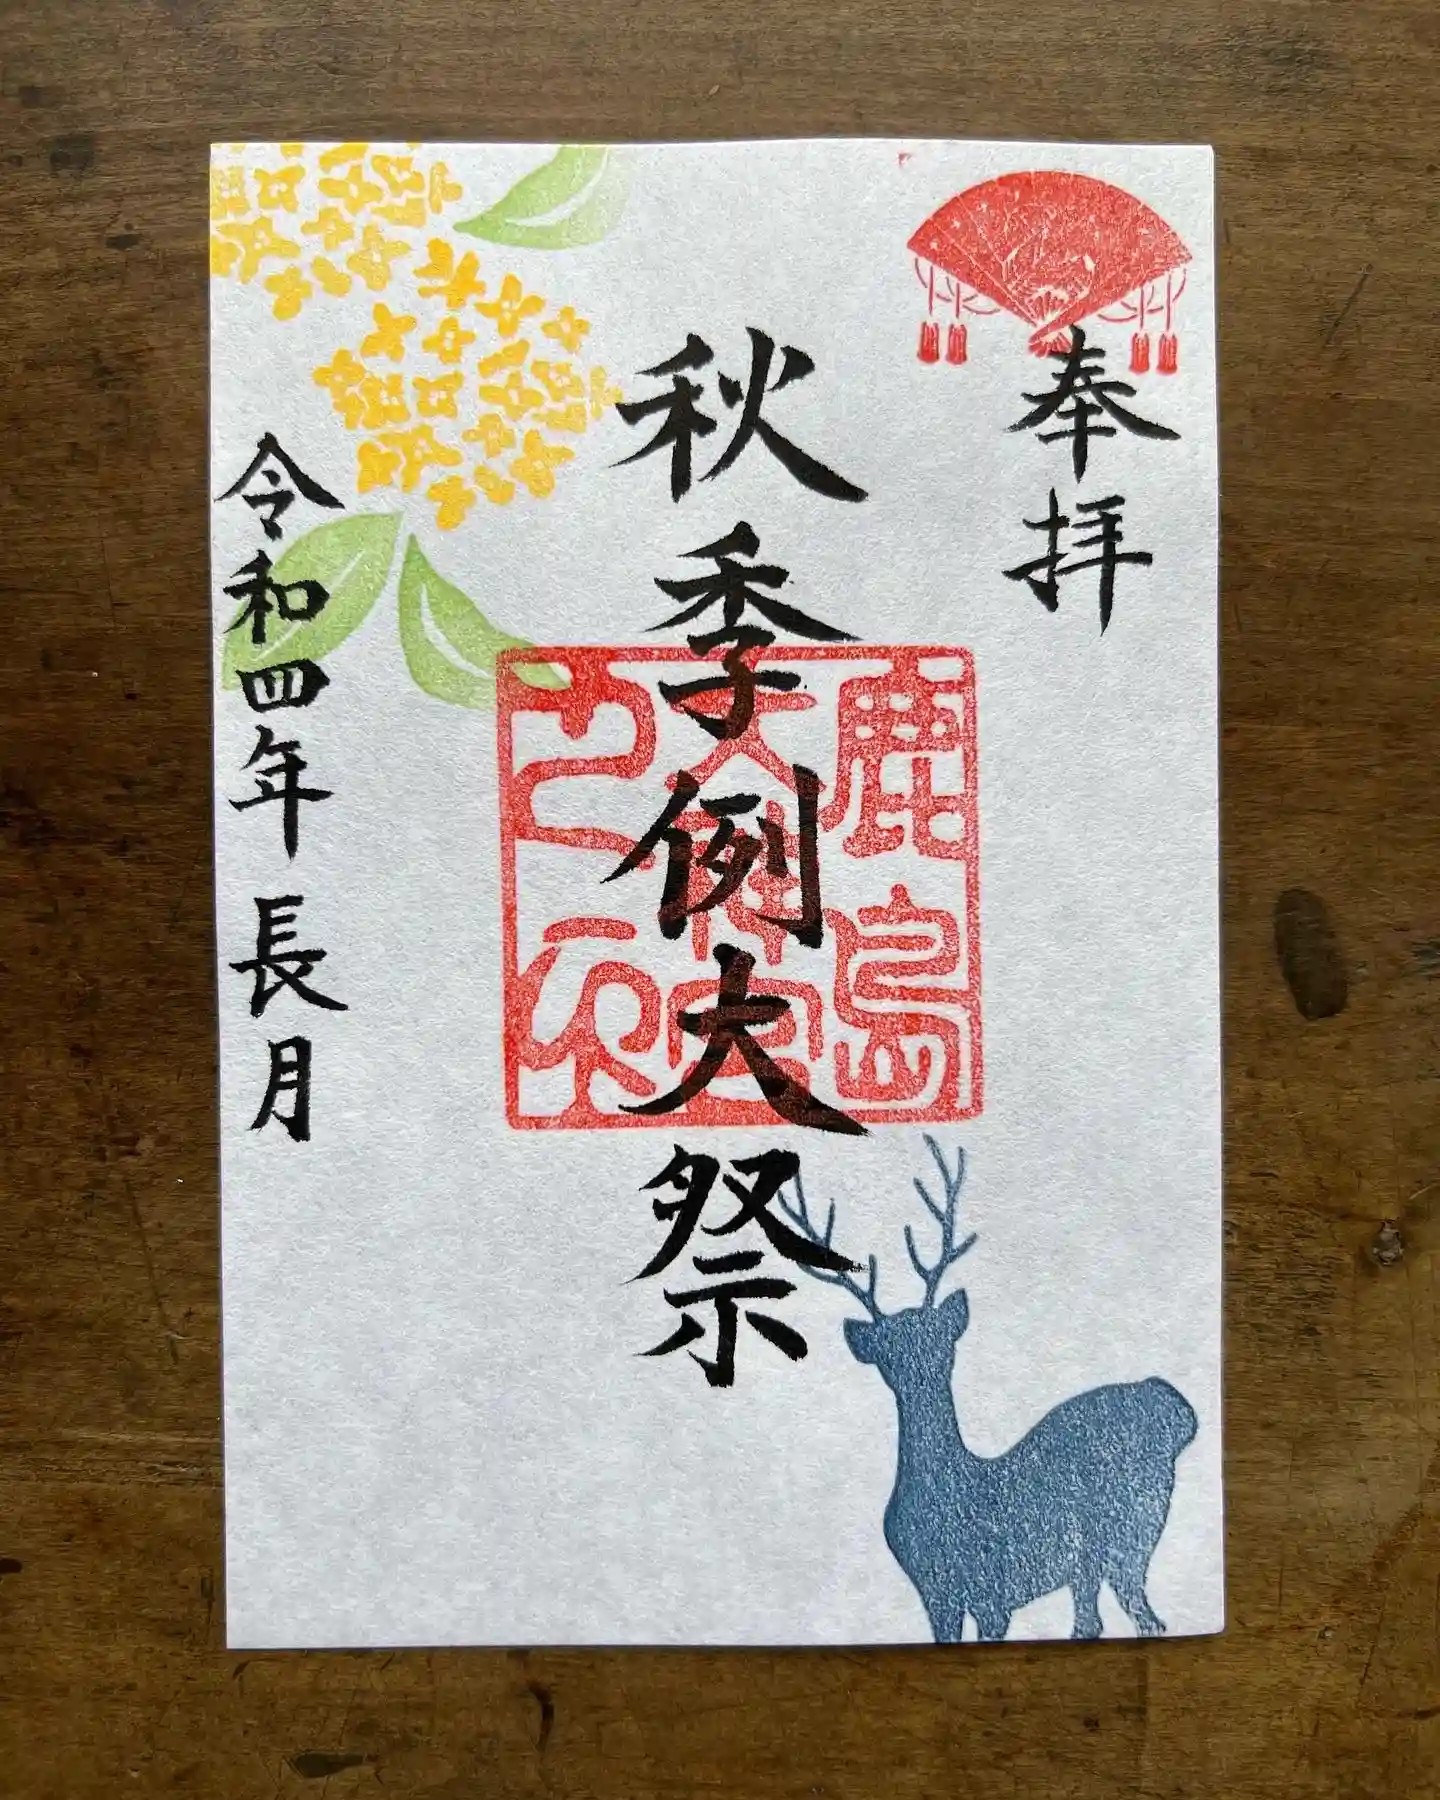 奉拝
秋季例大祭
鹿島
大神宮
之印
令和四年長月